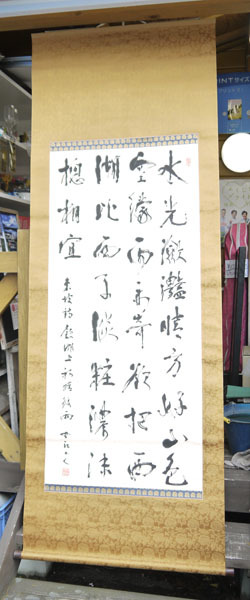 水光瀲灩晴方好山色
空濛雨亦奇欲把西
湖比西子淡粧濃抹
總相宜
東坡詩飲湖上初晴後雨